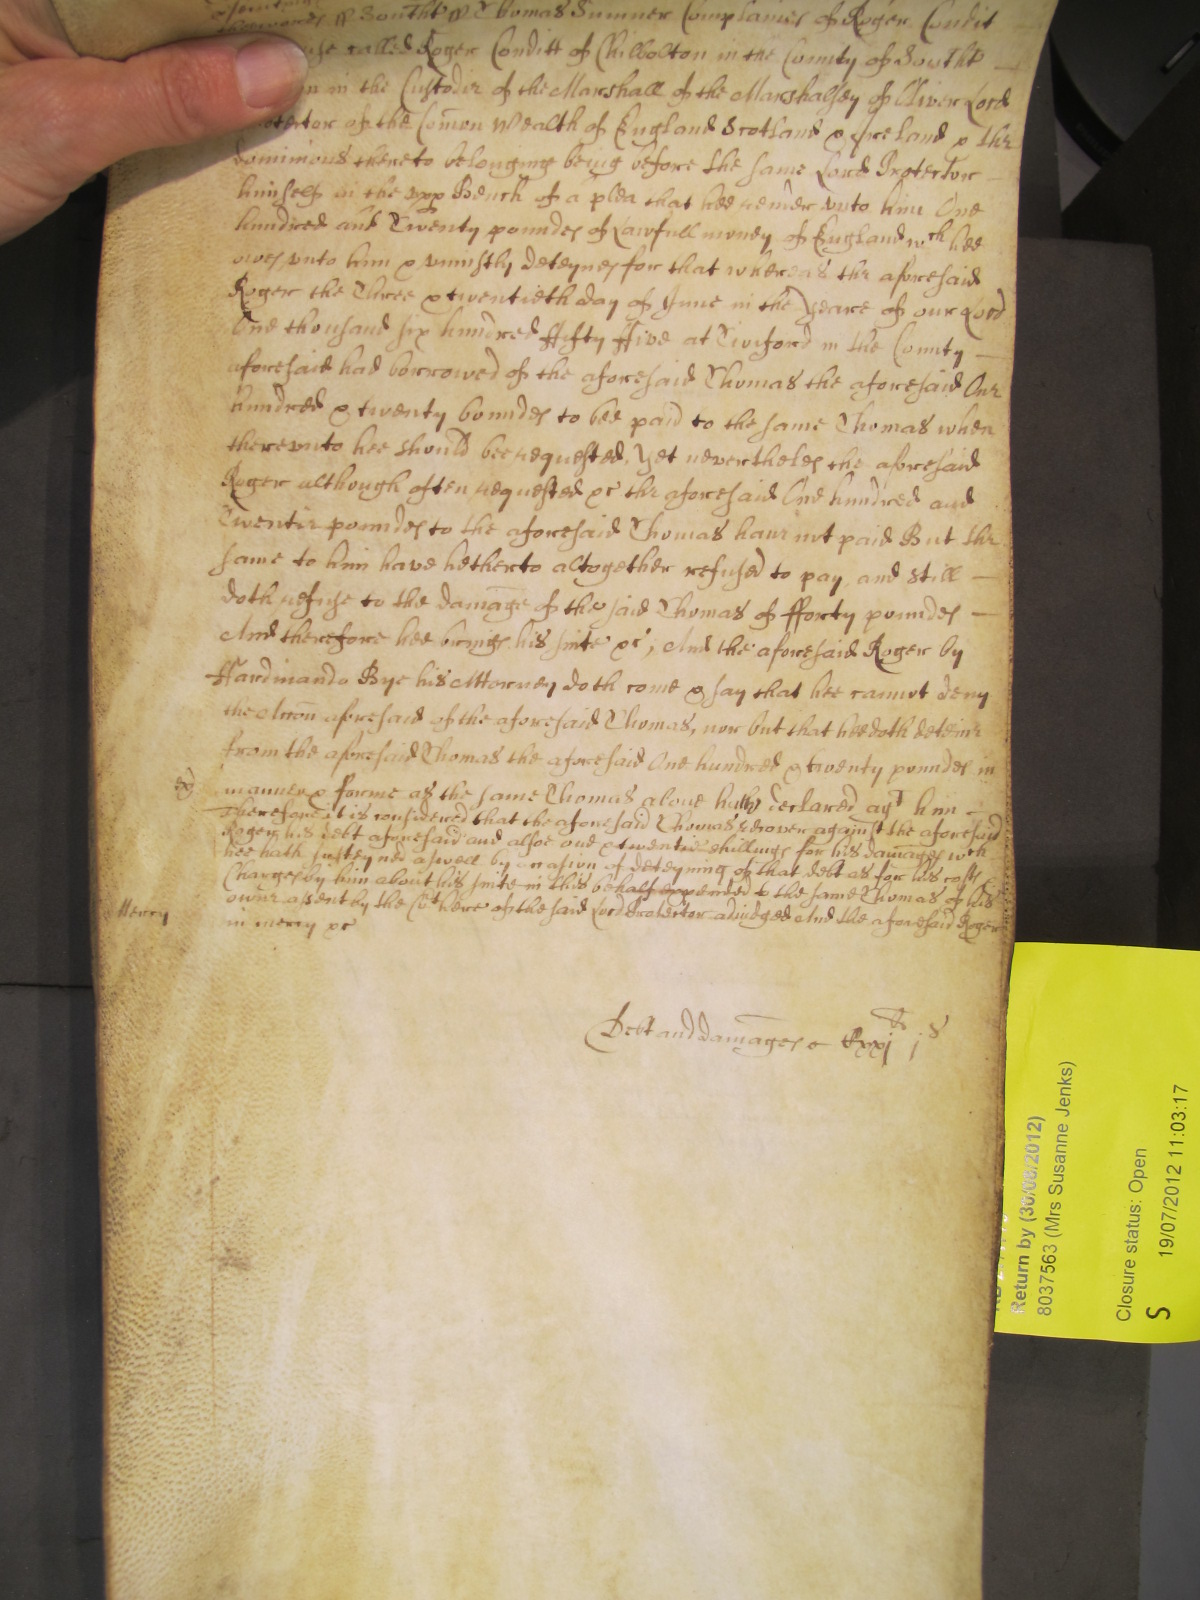 Southt ss Thomas Sumner Complaines of Roger Condit
called Roger Conditt of Chilbolton in the County of Southt
in the Custodie of the Marshall of the Marshalsey of Oliver Lord
Protector of the Comon Wealth of England Scotland & Ireland & the
dominions thereto belonginge being before the same Lord Protector
himself in the vpp Bench of a plea that hee render vnto him One
hundred and Twenty poundes of Lawfull money of England wch hee
owes vnto him & vniustly deteynes for that whereas the aforesaid
Roger the Three & twentieth day of June in the yeare of our Lord
One thousand six hundred ffifty ffive at Twiford in the County
aforesaid had borrowed of the aforesaid Thomas the aforesaid One
hundred & twenty poundes to bee paid to the same Thomas when
therevnto hee should bee requested, Yet nevertheles the aforesaid
Roger although often requested &c the aforesaid One hundred and
Twentie poundes to the aforesaid Thomas haue not paid But the
same to him have hetherto altogether refused to pay and still
doth refuse to the damage of the said Thomas of fforty poundes
And therefore hee brings his suite &c; And the aforesaid Roger by
ffardinando Bye his Attorney doth come & say that hee cannot deny
the Accon aforesaid of the aforesaid Thomas, nor but that hee doth deteine
from the aforesaid Thomas the aforesaid One hundred & twenty poundes in
manner & forme as the same Thomas aboue hath declared agt him
Therefore it is considered that the aforesaid Thomas recover against the aforesaid
Roger his debt aforesaid and alsoe one & twentie shillings for his damages wch
hee hath susteyned aswell by occasion of deteyning of that debt as for his costs
Charges by him about his suite in this behalf expended to the same Thomas of his
owne assent by the Cot here of the said Lord Protector adiudged And the aforesaid Roger
Mercy
in mercy &c
Debt and damages Cxxj li j s
Return by (30/08/2012)
8037563 (Mrs Susanne Jenks)
Closure status: Open
S 19/07/2012 11:03:17